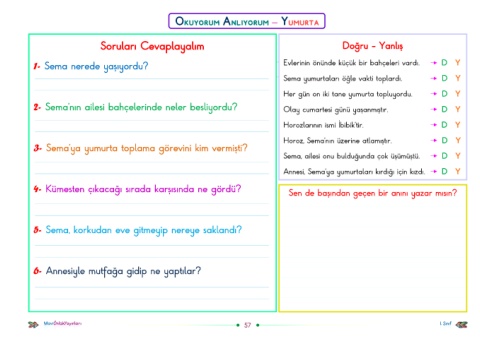 OKUYORUM ANLIYORUM – YUMURTA
Soruları Cevaplayalım
1- Sema nerede yaşıyordu?
2- Sema'nın ailesi bahçelerinde neler besliyordu?
3- Sema'ya yumurta toplama görevini kim vermişti?
4- Kümesten çıkacağı sırada karşısında ne gördü?
5- Sema, korkudan eve gitmeyip nereye saklandı?
6- Annesiyle mutfağa gidip ne yaptılar?
Doğru - Yanlış
Evlerinin önünde küçük bir bahçeleri vardı. → D Y
Sema yumurtaları öğle vakti toplardı. → D Y
Her gün on iki tane yumurta topluyordu. → D Y
Olay cumartesi günü yaşanmıştır. → D Y
Horozlarının ismi İbibik'tir. → D Y
Horoz, Sema'nın üzerine atlamıştır. → D Y
Sema, ailesi onu bulduğunda çok üşümüştü. → D Y
Annesi, Sema'ya yumurtaları kırdığı için kızdı. → D Y
Sen de başından geçen bir anını yazar mısın?
57
1. Sınıf